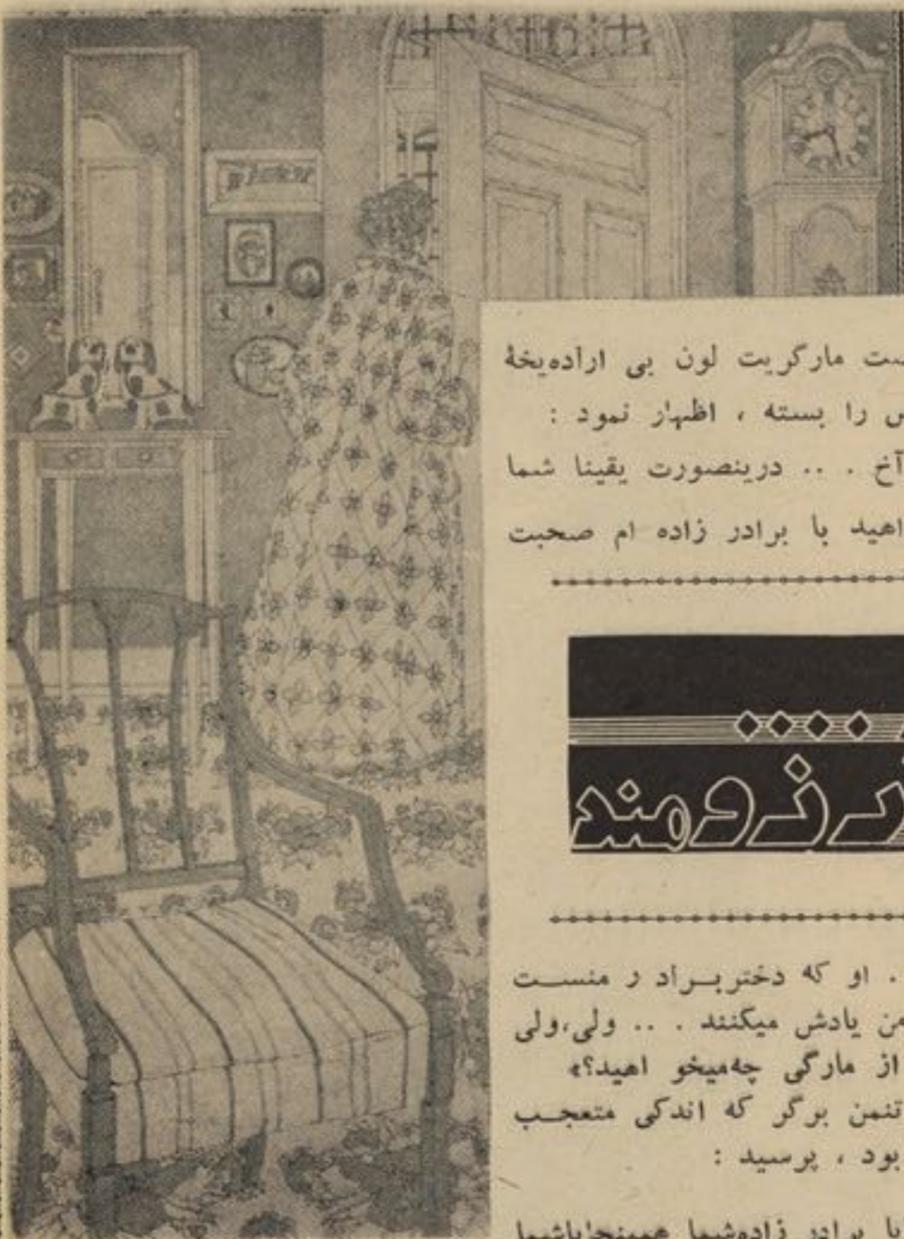 ست مارگریت لون بی ارادهیخهٔ
س را بسته ، اظهار نمود :
آخ . .. درینصورت یقینا شما
اهید با برادر زاده ام صحبت
رزومند
. او که دختربرادر منست
من یادش میکنند . .. ولی،ولی
از مارگی چهمیخو اهید؟»
تنمن برگر که اندکی متعجب
بود ، پرسید :
ایا برادر زادهشما همینجاباشما